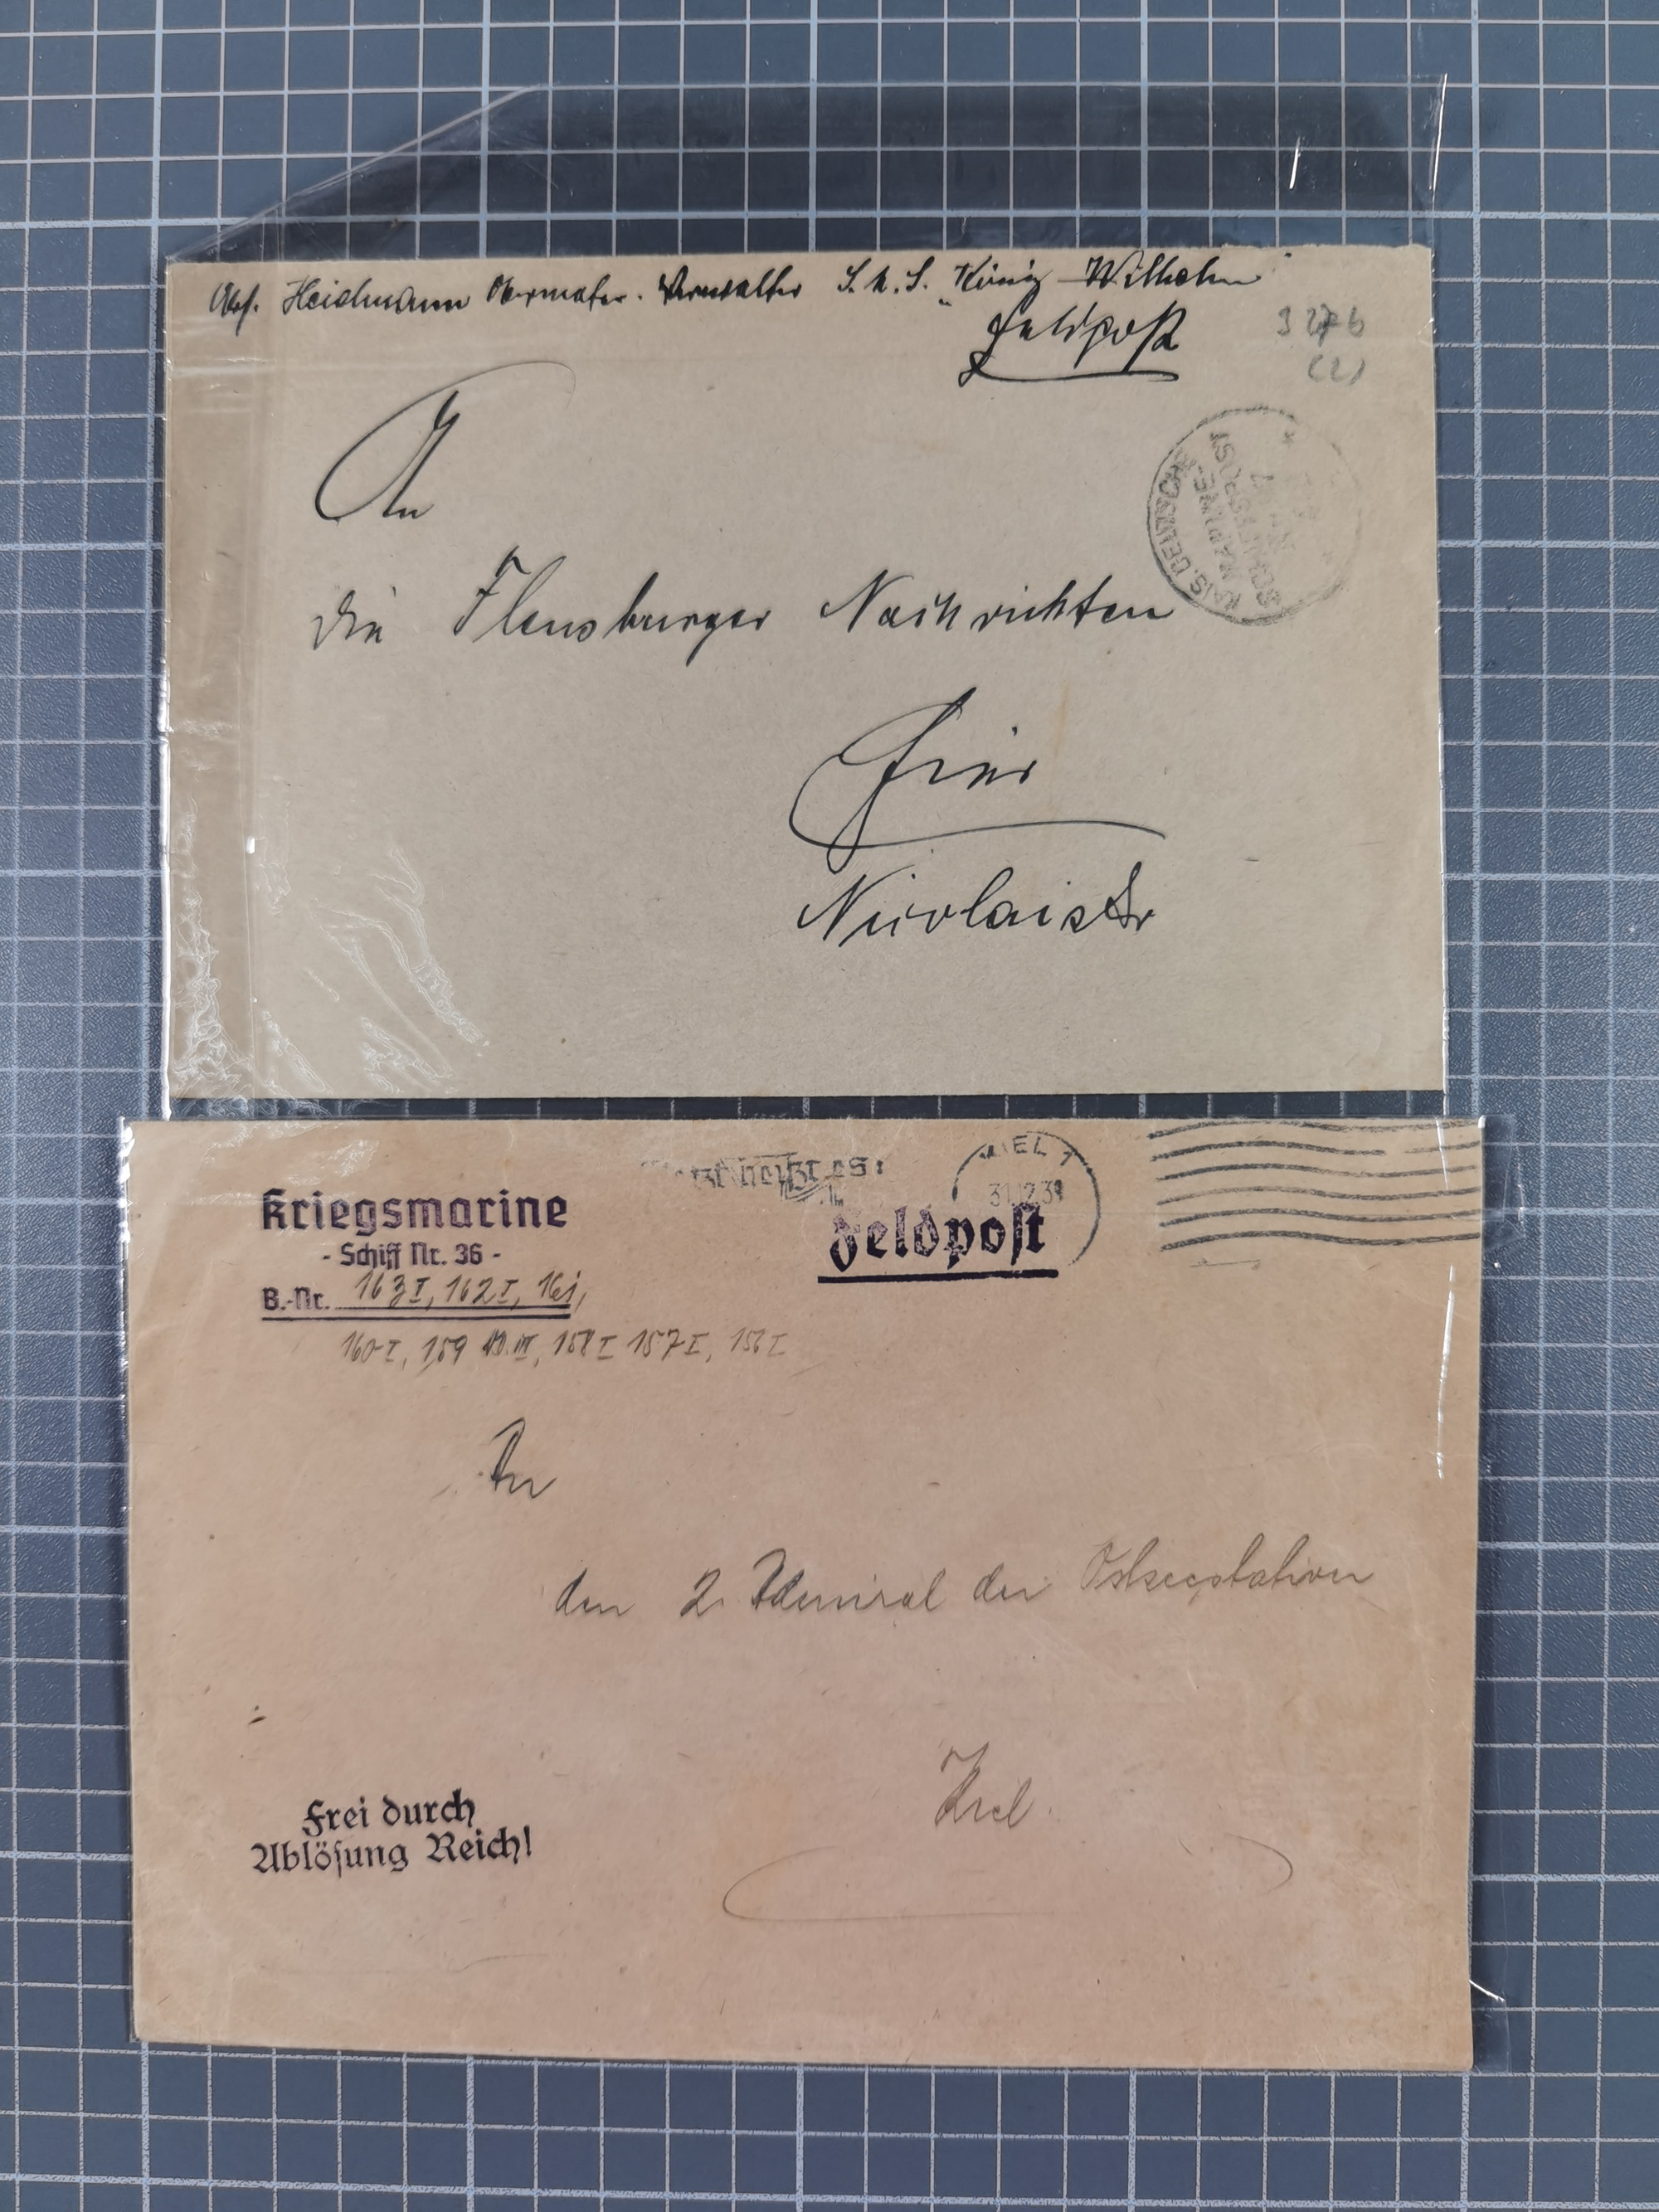 Abs. Heidmann Obermatr. Verwalter S.M.S. "König Wilhelm"
Feldpost
(2)
An
KAIS. DEUTSCHE
MARINE-
SCHIFFSPOST
die Flensburger Nachrichten
Hier
Nicolaistr
heißt es:
KIEL 1
31.12.39
Kriegsmarine
- Schiff Nr. 36 -
Feldpost
B.-Nr. 163 I, 162 I, 161,
160 I, 159 III, 158 I 157 I, 156 I
An
den 2. Admiral der Ostseestation
Kiel
Frei durch
Ablösung Reich!